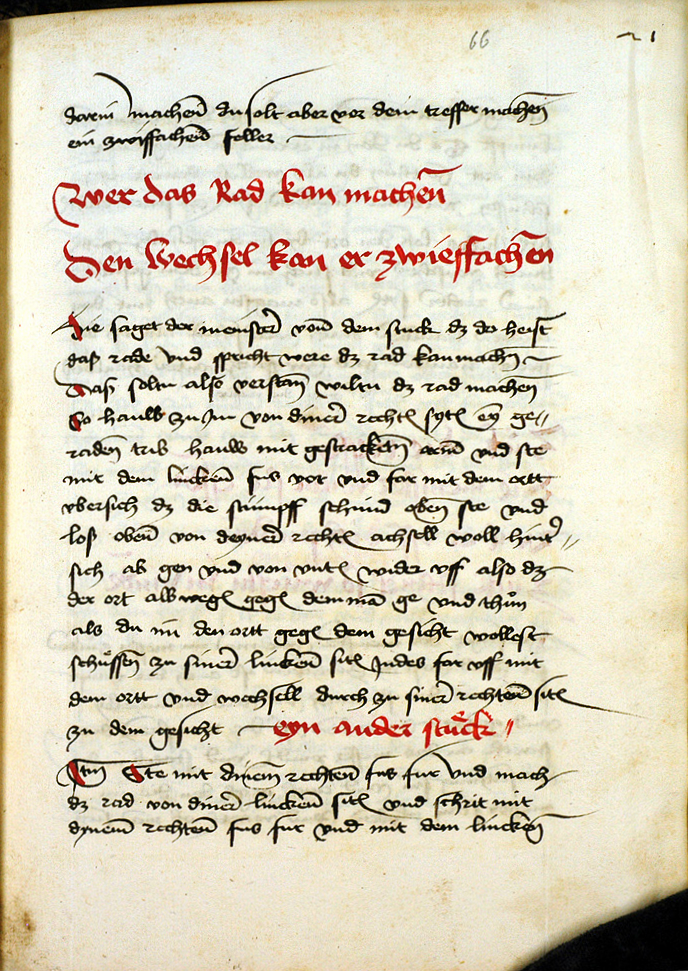 66
darin machen du solt aber vor dem treffer machen
ein zwiffachend feller
Wer das Rad kan machen
Den Wechsel kan er zwieffachen
Hie saget der meinster von dem stuck dz do heist
das rade vnd spricht were dz rad kan machen
Das soltu also verstan wiltu dz rad machen
So hauw zu Im von diner rechten syten eyn ge„
raden trib hauw mit gestrackten armen vnd ste
mit dem lincken fus vor vnd far mit dem ortt
vbersich dz die stumpff schnid oben ste vnd
loß oben von deyner rechten achsell woll hinter„
sich ab gen vnd von vnten wider vff also dz
der ort albwegen gegen dem man ge vnd thun
als du im den ortt gegen dem gesicht wollest
schüssen zu siner lincken siten Indes far vff mit
dem ortt vnd wechsell durch zu siner rechten siten
zu dem gesicht eyn ander stuck
Itm Ste mit dinem rechten fus fur vnd mach
dz rad von diner lincken siten vnd schrit mit
dynem rechten fus fur vnd mit dem lincken